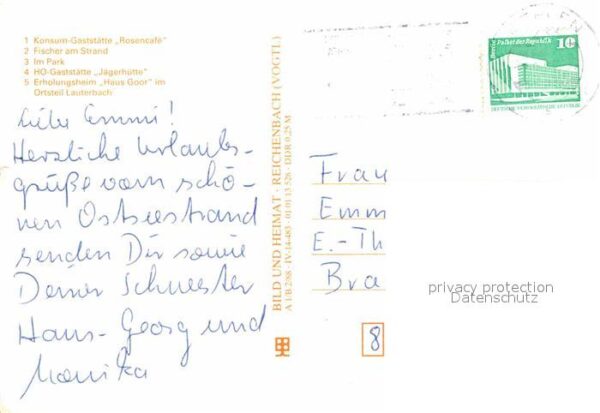 1 Konsum-Gaststätte „Rosencafé"
2 Fischer am Strand
3 Im Park
4 HO-Gaststätte „Jägerhütte"
5 Erholungsheim „Haus Goor" im
Ortsteil Lauterbach
Liebe Emmi!
Herzliche Urlaubs-
grüße vom schö-
nen Ostseestrand
senden Dir sowie
Deiner Schwester
Hans-Georg und
Monika
BILD UND HEIMAT · REICHENBACH (VOGTL)
A 1/B 2/88 · IV-14-483 · 01 01 13 526 · DDR 0,25 M
Palast der Republik
10
DEUTSCHE DEMOKRATISCHE REPUBLIK
Frau
Emm
E.-Th
Bra
8
privacy protection
Datenschutz